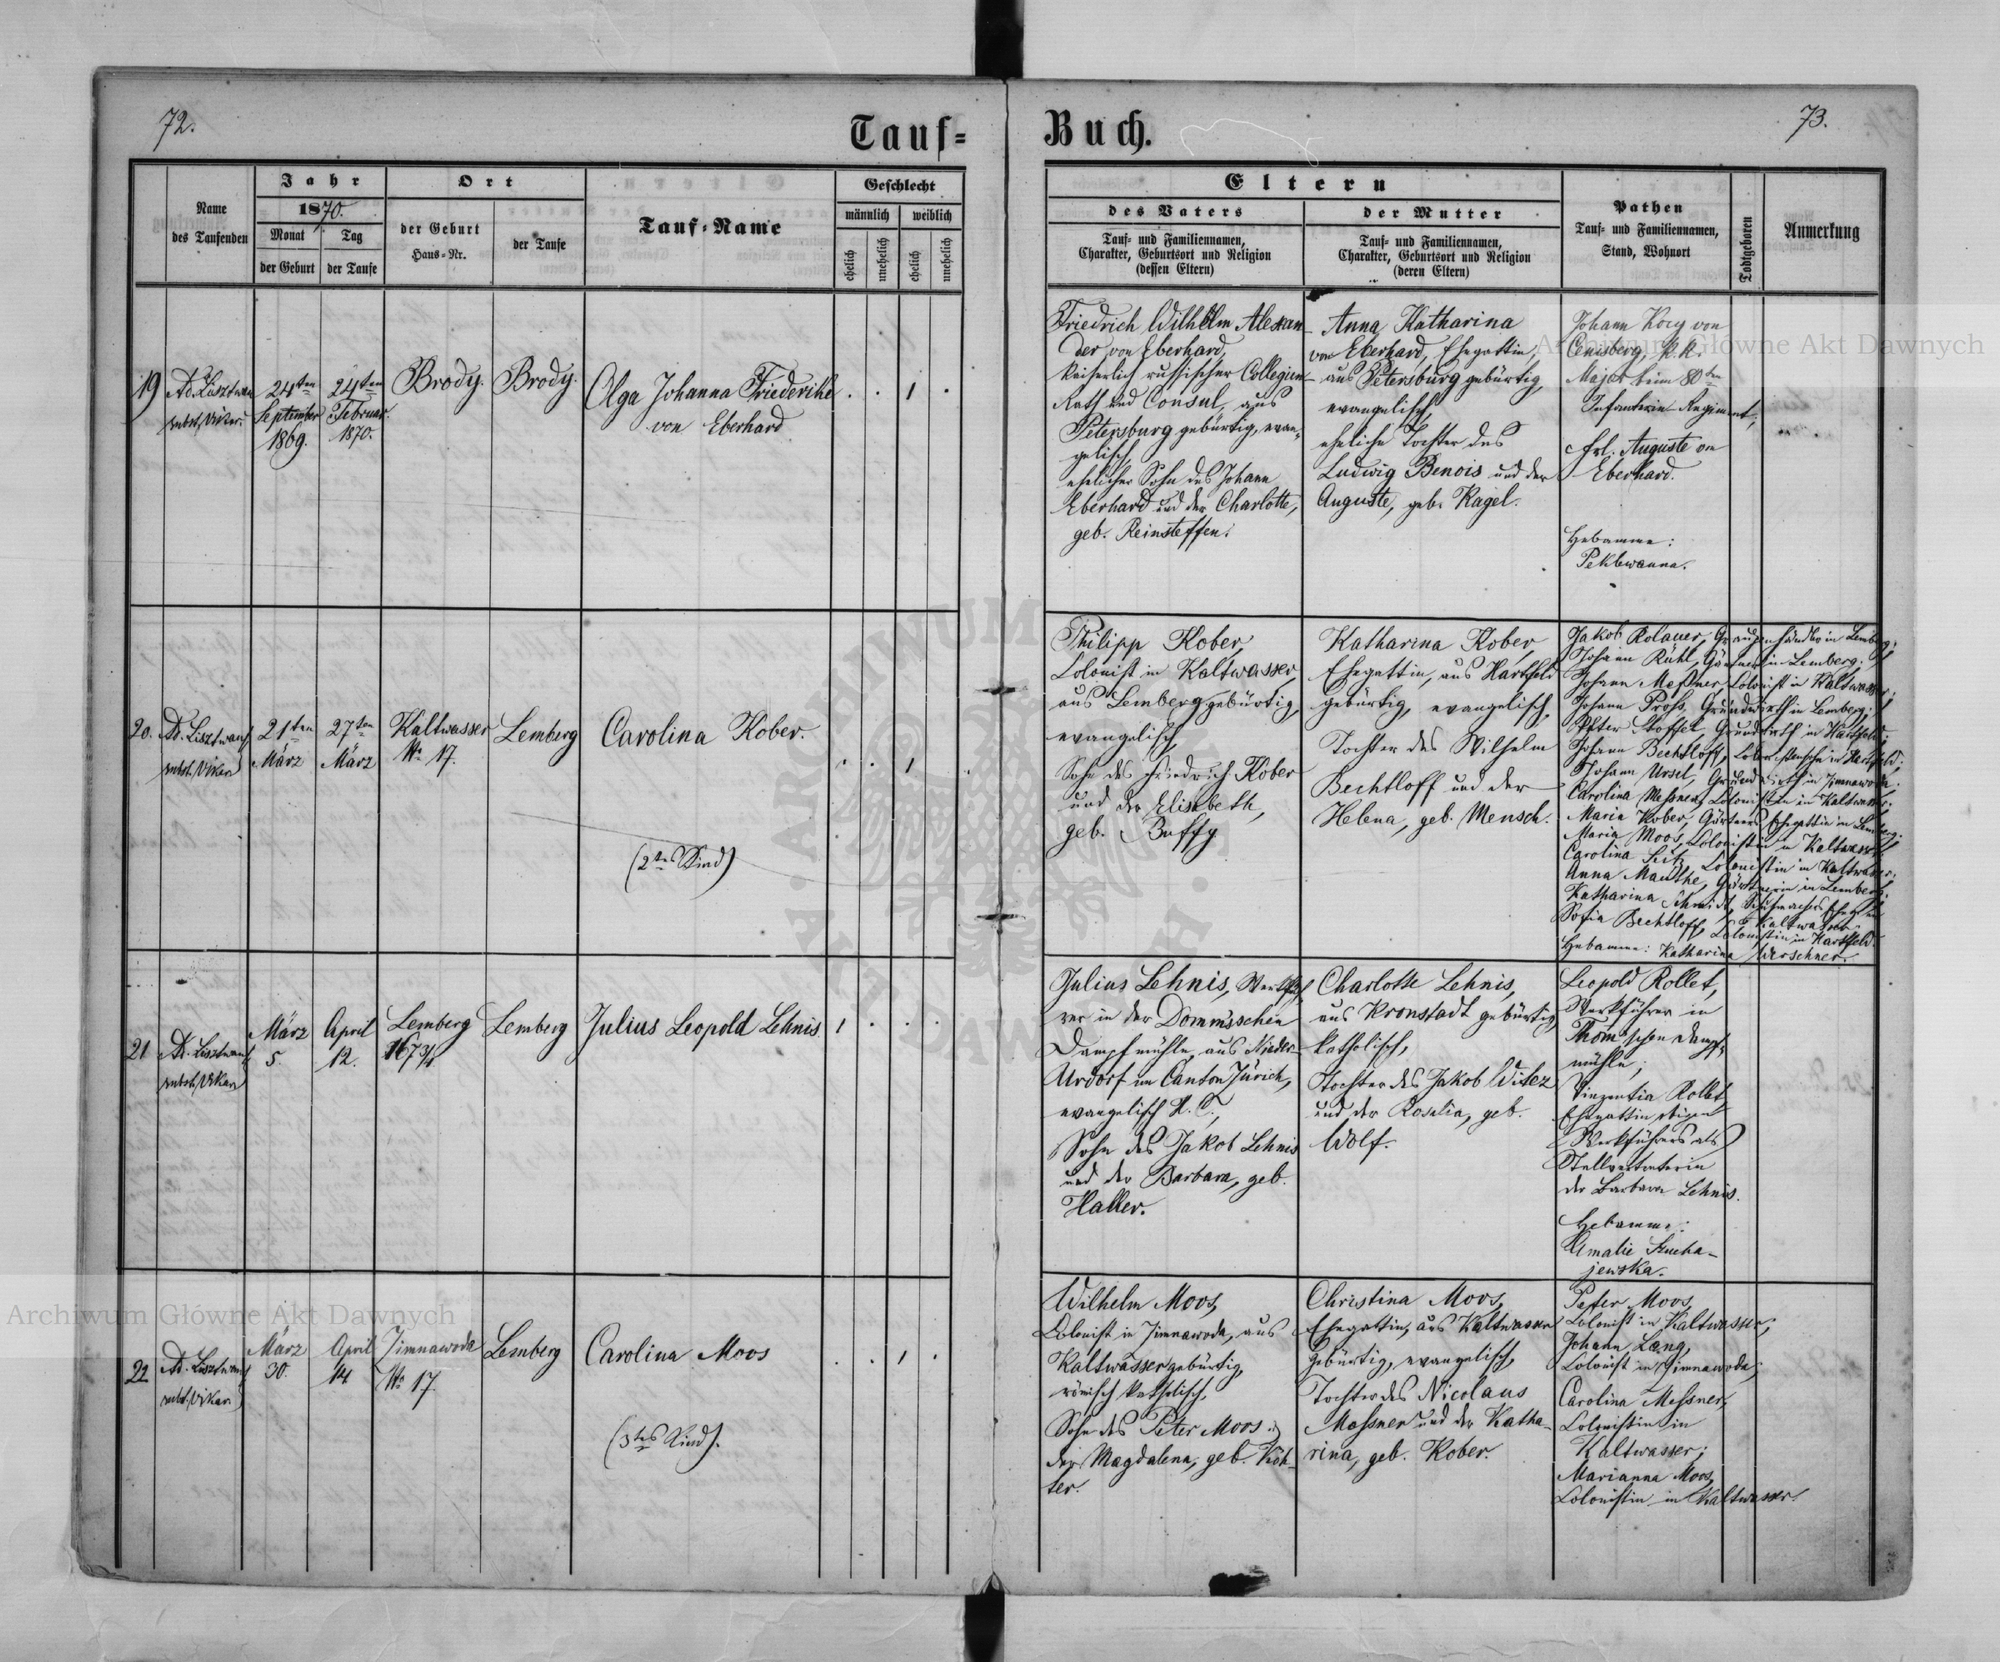 72.
73.
Tauf-
Buch.
Name
des Taufenden
Jahr
1870.
Monat
der Geburt
Tag
der Taufe
Ort
der Geburt
Haus-Nr.
der Taufe
Tauf-Name
Geschlecht
männlich
weiblich
ehelich
unehelich
ehelich
unehelich
Eltern
des Vaters
Tauf- und Familiennamen,
Charakter, Geburtsort und Religion
(dessen Eltern)
der Mutter
Tauf- und Familiennamen,
Charakter, Geburtsort und Religion
(deren Eltern)
Pathen
Tauf- und Familiennamen,
Stand, Wohnort
Todtgeboren
Anmerkung
19
24ten
September
1869.
24ten
Februar
1870.
Brody.
Brody.
Olga Johanna Friederike
von Eberhard
Friedrich Wilhelm Alexan-
der von Eberhard,
kaiserlich russischer Collegien-
Rath und Consul, aus
Petersburg gebürtig, evan-
gelisch,
ehelicher Sohn des Johann
Eberhard und der Charlotte,
geb. Reinsteffen.
Anna Katharina
von Eberhard, Ehegattin,
aus Petersburg gebürtig,
evangelisch,
eheliche Tochter des
Ludwig Benois und der
Auguste, geb. Kagel.
Johann
k.k.
Major beim 80ten
Infanterie-Regiment,
Frl. Auguste von
Eberhard.
Hebamme:
20.
21ten
März
27ten
März
Kaltwasser
No 17.
Lemberg
Carolina Kober.
(2tes Kind)
Philipp Kober,
Colonist in Kaltwasser,
aus Lemberg gebürtig,
evangelisch,
Sohn des Friedrich Kober
und der Elisabeth,
geb. Buffy
Katharina Kober,
Ehegattin, aus Hartfeld
gebürtig, evangelisch,
Tochter des Wilhelm
Bechtloff und der
Helena, geb. Mensch.
Jakob Rolauer, in Lemberg;
Johann Rühl, Gärtner in Lemberg;
Johann Meßner, Colonist in Kaltwasser;
Johann Proß, Grundwirth in Lemberg;
Peter Stoffel, Grundwirth in Hartfeld;
Johann Bechtloff, in Hartfeld;
Johann Ursel, Grundwirth in Zimnawoda.
Carolina Meßner, Colonistin in Kaltwasser.
Maria Kober, Gärtners Ehegattin in Lemberg.
Maria Moos, Colonistin in Kaltwasser
Carolina Seitz, Colonistin in Kaltwasser;
Anna Mauthe, Gärtnerin in Lemberg.
Katharina Schmidt, in Kaltwasser
Sofia Bechtloff, Colonistin in Hartfeld.
Hebamme: Katharina Werschner.
21
März
5.
April
12.
Lemberg
167 3/4
Lemberg
Julius Leopold Lehnis
Julius Lehnis, Werkfüh-
rer in der Domms'schen
Dampfmühle, aus Nieder-
Urdorf im Canton Zürich,
evangelisch H. C.,
Sohn des Jakob Lehnis
und der Barbara, geb.
Haller.
Charlotte Lehnis,
aus Kronstadt gebürtig,
katholisch,
Tochter des Jakob Witez
und der Rosalia, geb.
Wolf.
Leopold Rollet,
Werkführer in
Thom'schen Dampf-
mühle;
Vinzentia Rollet
Ehegattin obigen
Werkführers als
Stellvertreterin
der Barbara Lehnis.
Hebamme:
Amalie Szucha-
jewska.
22
März
30.
April
14
Zimnawoda
No 17.
Lemberg
Carolina Moos
(3tes Kind).
Wilhelm Moos,
Colonist in Zimnawoda, aus
Kaltwasser gebürtig,
römisch katholisch,
Sohn des Peter Moos u.
der Magdalena, geb. Köh-
ler.
Christina Moos,
Ehegattin, aus Kaltwasser
gebürtig, evangelisch,
Tochter des Nicolaus
Messner und der Katha-
rina, geb. Kober.
Peter Moos,
Colonist in Kaltwasser;
Johann Lang,
Colonist in Zimnawoda;
Carolina Messner,
Colonistin in
Kaltwasser;
Marianna Moos,
Colonistin in Kaltwasser.
Archiwum Główne Akt Dawnych
Archiwum Główne Akt Dawnych